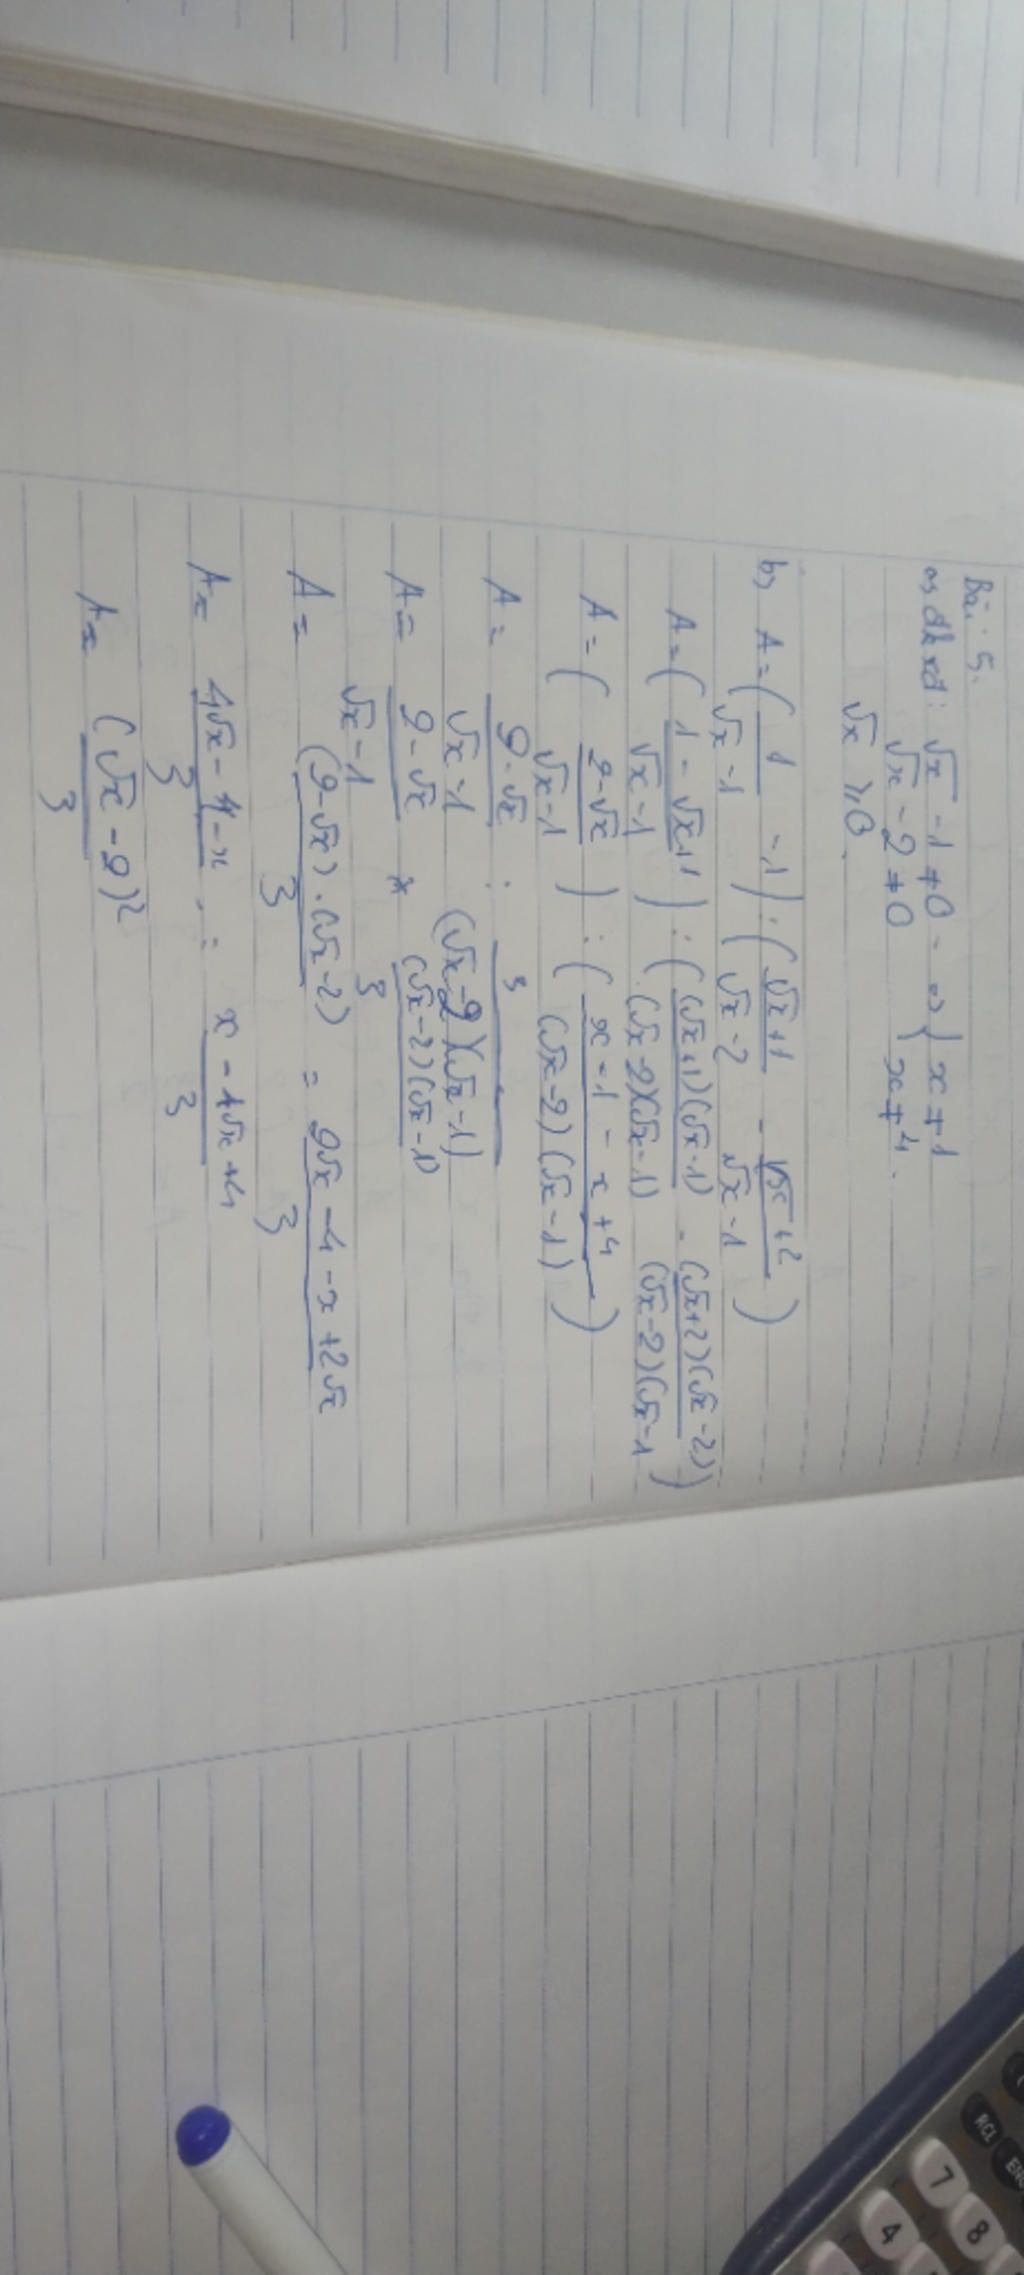 Bài 5.
a, đkxđ: √x - 1 ≠ 0 => { x ≠ 1
√x - 2 ≠ 0 x ≠ 4.
√x ≥ 0.
b, A = ( 1/(√x - 1) - 1 ) : ( (√x + 1)/(√x - 2) - (√x + 2)/(√x - 1) )
A = ( (1 - √x + 1)/(√x - 1) ) : ( (√x + 1)(√x - 1)/(√x - 2)(√x - 1) - (√x + 2)(√x - 2)/(√x - 2)(√x - 1) )
A = ( (2 - √x)/(√x - 1) ) : ( (x - 1 - x + 4)/(√x - 2)(√x - 1) )
A = (2 - √x)/(√x - 1) : 3/(√x - 2)(√x - 1)
A = (2 - √x)/(√x - 1) * (√x - 2)(√x - 1)/3
A = (2 - √x).(√x - 2)/3 = (2√x - 4 - x + 2√x)/3
A = (4√x - 4 - x)/3 . = (x - 4√x + 4)/3
A = (√x - 2)²/3
RCL
ENG
7
8
4